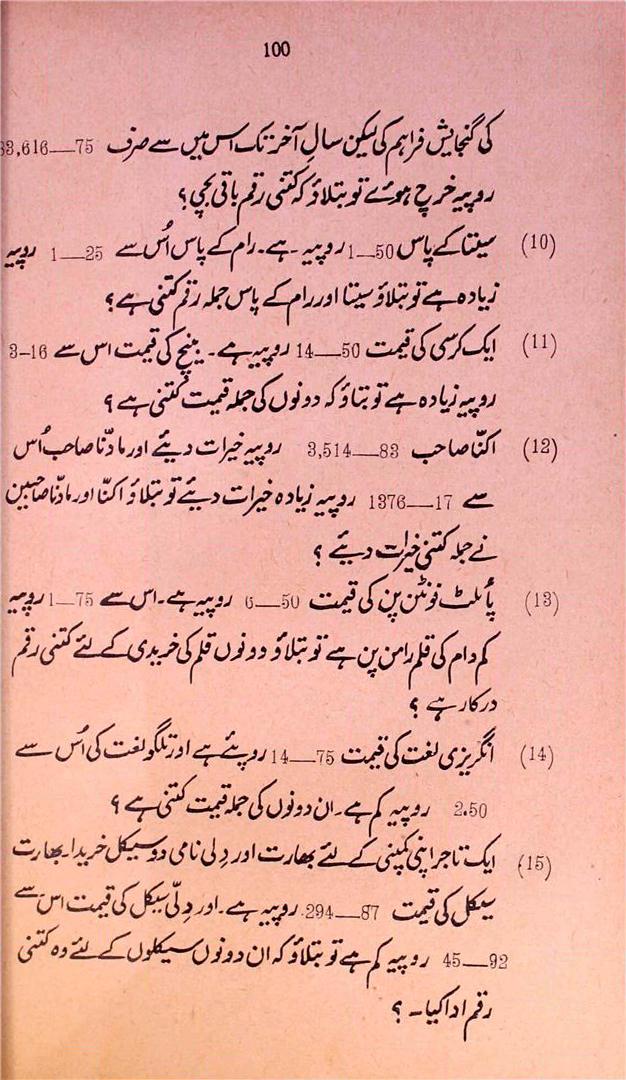 100
کی گنجایش فراہم کی لیکن سالِ آخر تک اس میں سے صرف 75—33,616
روپیہ خرچ ہوے تو بتلاؤ کہ کتنی رقم باقی بچی؟
(10) سیتا کے پاس 50—1 روپیہ ہے۔ رام کے پاس اُس سے 25—1 روپیہ
زیادہ ہے تو بتلاؤ سیتا اور رام کے پاس جملہ رقم کتنی ہے؟
(11) ایک کرسی کی قیمت 50—14 روپیہ ہے۔ بینچ کی قیمت اس سے 16-3
روپیہ زیادہ ہے تو بتاؤ کہ دونوں کی جملہ قیمت کتنی ہے؟
(12) اکنّا صاحب 83—3,514 روپیہ خیرات دیئے اور مادنّا صاحب اُس
سے 17—1376 روپیہ زیادہ خیرات دیئے تو بتلاؤ اکنّا اور مادنّا صاحبین
نے جملہ کتنی خیرات دیئے ؟
(13) پائلٹ فونٹن پن کی قیمت 50—6 روپیہ ہے۔ اس سے 75—1 روپیہ
کم دام کی قلم رامن پن ہے تو بتلاؤ دونوں قلم کی خریدی کے لئے کتنی رقم
درکار ہے ؟
(14) انگریزی لغت کی قیمت 75—14 روپئے ہے اور تلگو لغت کی اُس سے
2.50 روپیہ کم ہے۔ ان دونوں کی جملہ قیمت کتنی ہے ؟
(15) ایک تاجر اپنی کمپنی کے لئے بھارت اور دِلی نامی دو سیکل خریدا۔ بھارت
سیکل کی قیمت 87—294 روپیہ ہے۔ اور دِلّی سیکل کی قیمت اس سے
92—45 روپیہ کم ہے تو بتلاؤ کہ ان دونوں سیکلوں کے لئے وہ کتنی
رقم ادا کیا۔ ؟